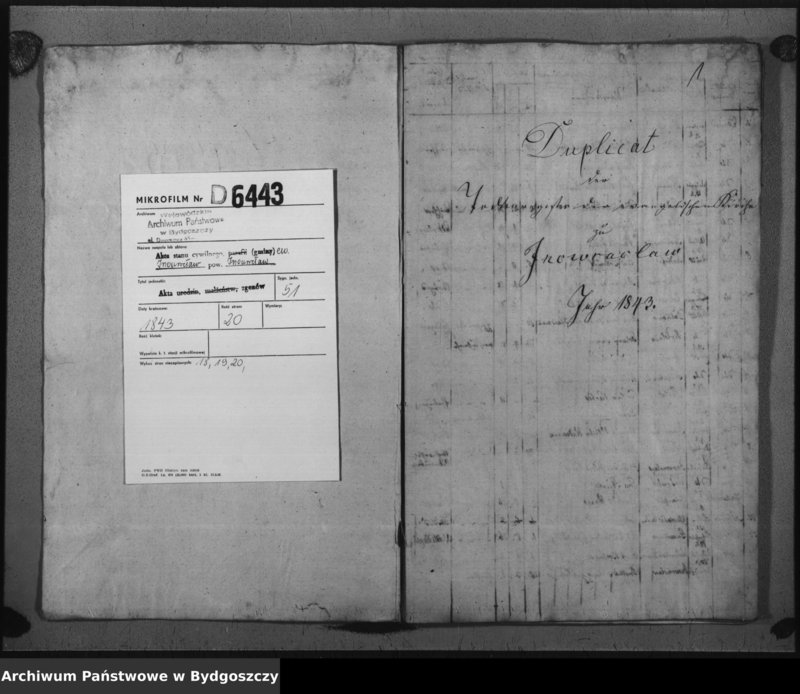 MIKROFILM Nr D 6443
Archiwum
Wojewódzkie
Archiwum Państwowe
w Bydgoszczy
Nazwa zespołu lub zbioru
Akta stanu cywilnego, parafii (gminy) ew.
Inowrocław pow. Inowrocław
Tytuł jednostki:
Sygn. jedn.
Akta urodzin, małżeństw, zgonów
51
Daty krańcowe:
Ilość stron:
Wymiary:
1843
20
Ilość klatek
Wypełnia k. t. stacji mikrofilmowej
Wykaz stron niezapisanych: 13, 19, 20,
1
Duplicat
der
Todtenregister der evangelischen Kirche
zu
Inowraclaw
Jahr 1843.
Archiwum Państwowe w Bydgoszczy